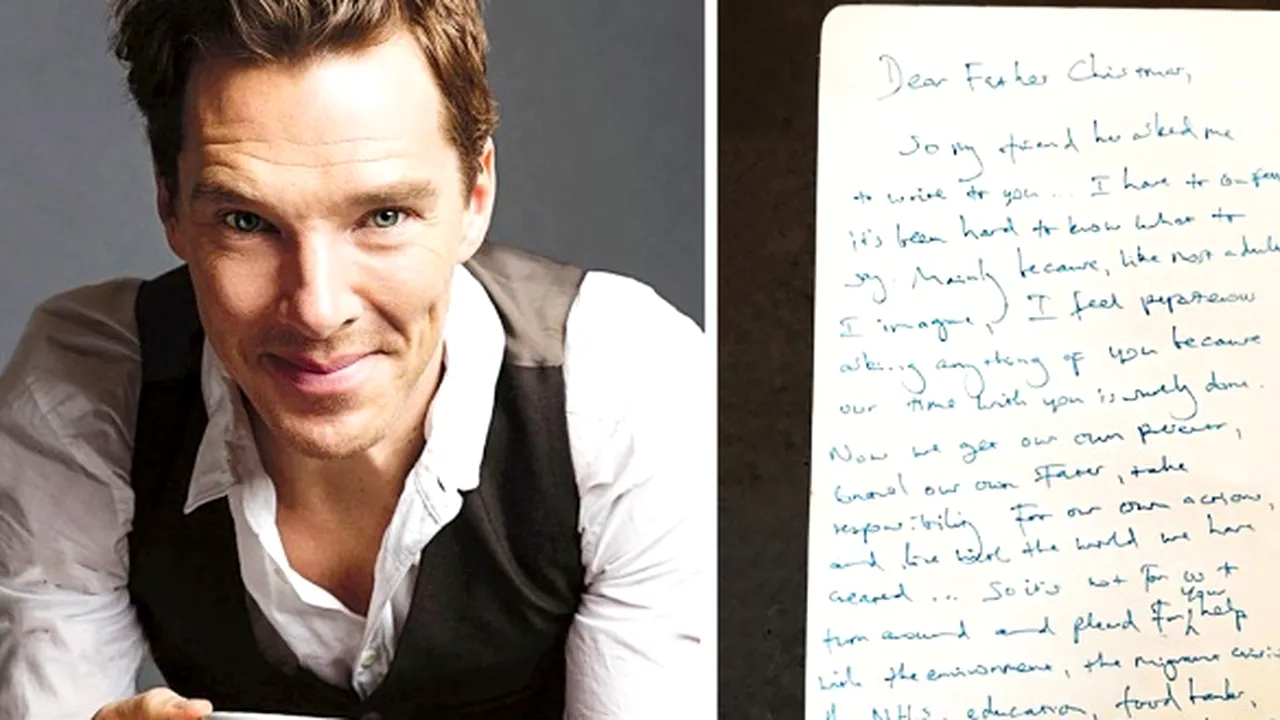 Dear Father Christmas,
So my friend has asked me
to write to you... I have to confess
it's been hard to know what to
say. Mainly because, like most adults
I imagine, I feel preposterous
asking anything of you because
our time with you is surely done.
Now we get our own presents,
our own states, take
responsibility for our own actions,
and live with the world we have
created ... So it's not for us to
turn around and plead for your help
with the environment, the migrant crisis
the NHS, education, food banks,